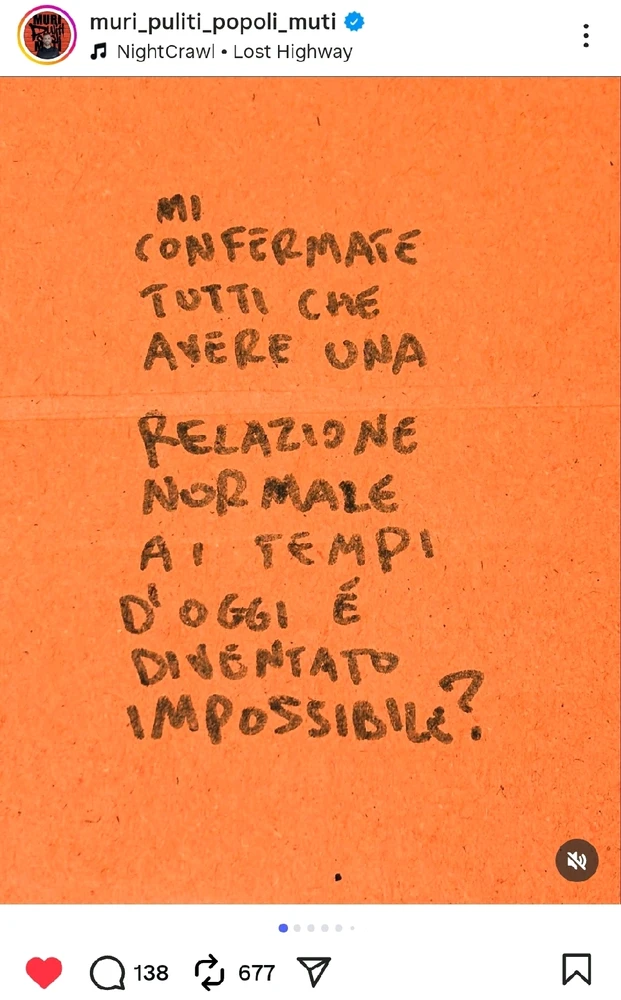 muri_puliti_popoli_muti
NightCrawl • Lost Highway
MI
CONFERMATE
TUTTI CHE
AVERE UNA
RELAZIONE
NORMALE
AI TEMPI
D'OGGI É
DIVENTATO
IMPOSSIBILE?
138
677